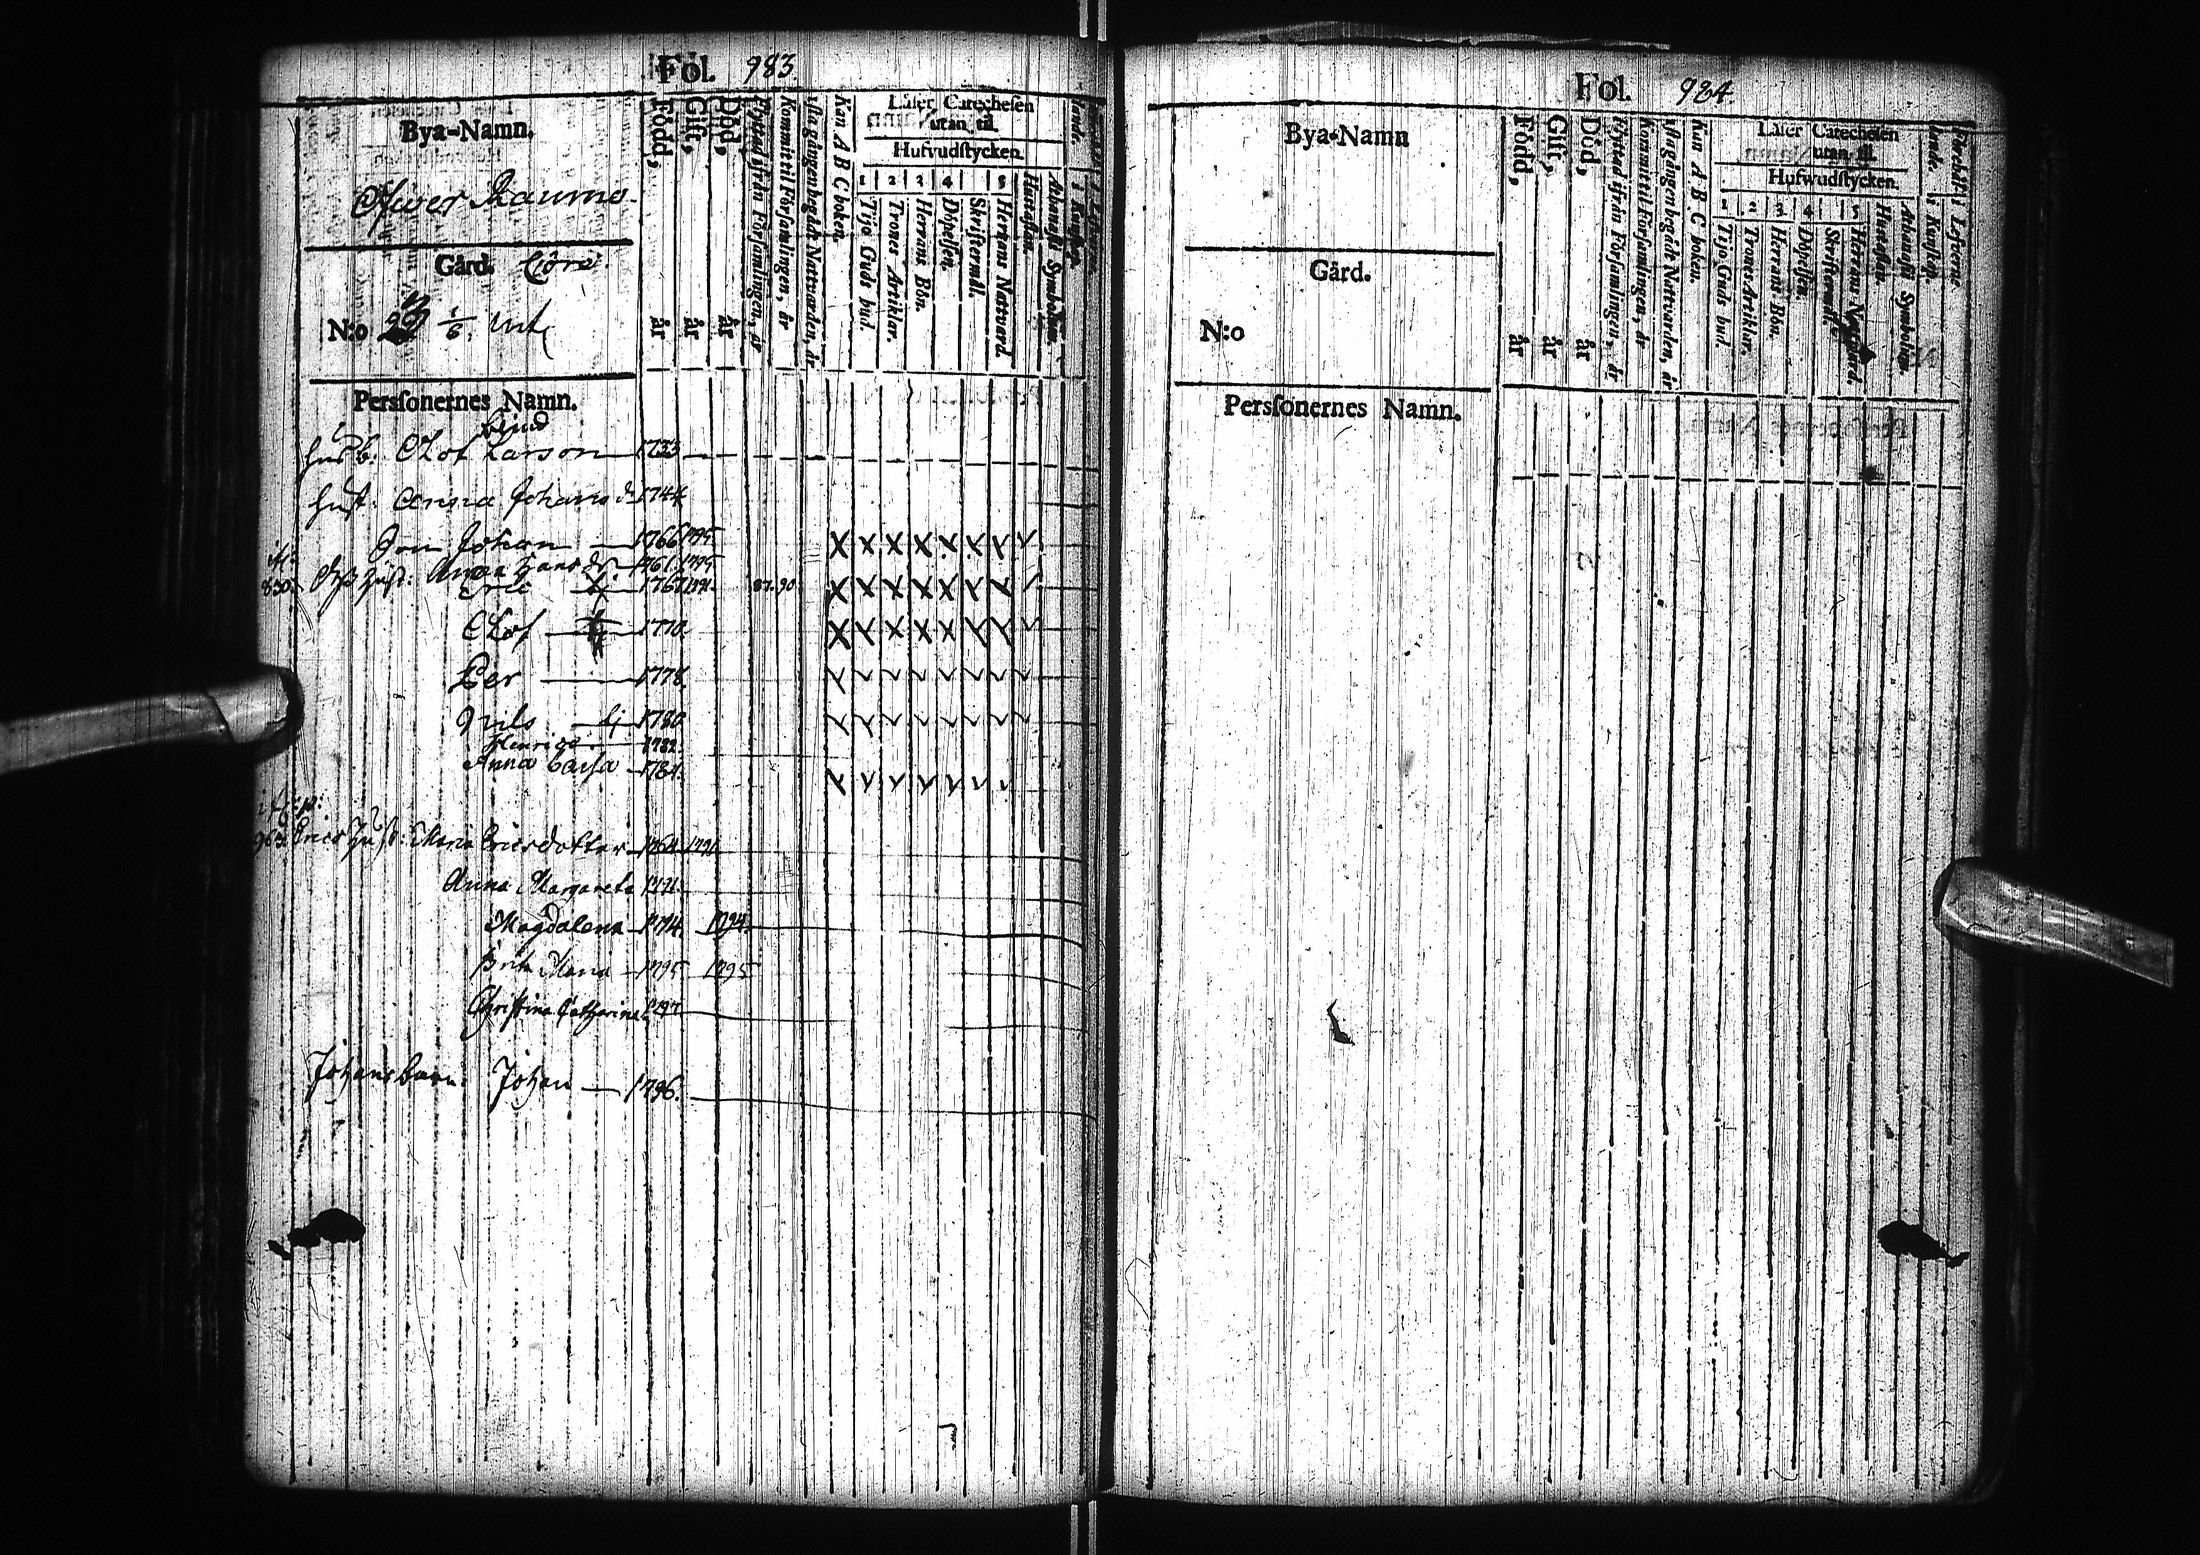 Fol. 983
Bya-Namn.
Öfwer Raumo.
Gård.
N:o 1/6.
Född, år
Gift, år
Död, år
Flyttad ifrån Församlingen, år
Kommit til Församlingen, år
1sta gången begådt Nattvarden, år
Kan A B C boken.
Läser Catechesen
utan til.
Hufvudstycken.
1 Tijo Guds bud.
2 Trones Artiklar.
3 Herrans Bön.
4 Döpelsen.
Skriftermål.
5 Herrans Nattvard.
Hustaflan.
Athanasii Symbolum.
Personernes Namn.
blind
husb: Olof Larson 1733
hust: Anna Johans dr 1744
Son Johan 1766 1795
Hans hust: Anna Hans dr 1761 1795
830 Eric 1767 1791 87.90
Olof 1770.
Per 1778.
Nils 1780
Henric 1782.
Anna Caisa 1784.
963 Erics Hust: Maria Ericsdotter 1764 1791
Anna Margareta 1791.
Magdalena 1794. 1794.
Brita Maria 1795 1795
Christina Catharina 1797
Johans barn: Johan 1796.
Fol. 984.
Bya-Namn
Gård.
N:o
Född, år
Gift, år
Död, år
Flyttad ifrån Församlingen, år
Kommit til Församlingen, år
1sta gången begådt Nattvarden, år
Kan A B C boken.
Läser Catechesen
utan til.
Hufwudstycken.
1 Tijo Guds bud
2 Trones Artiklar.
3 Herrans Bön.
4 Döpelsen.
Skriftermål.
5 Herrans Nattvard.
Hustaflan.
Athanasii Symbolum.
Personernes Namn.